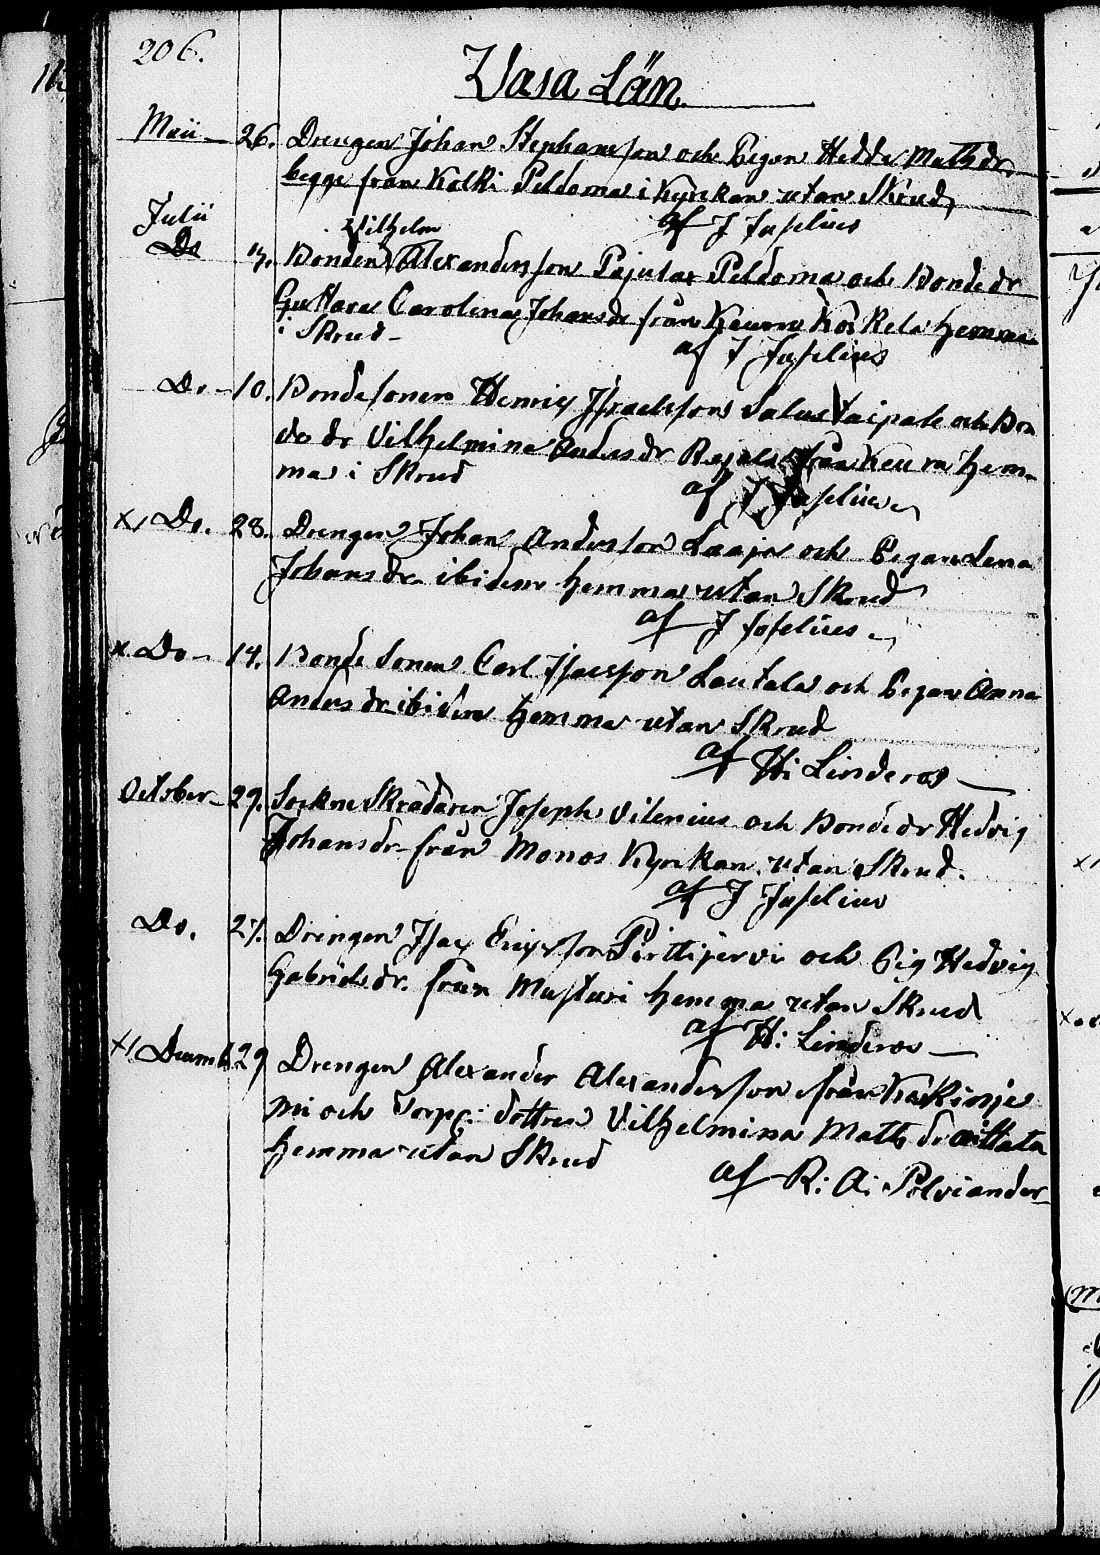 206.
Vasa Län
Maii 26. Drengen Johan Stephansson och Pigan Hedda Mathsdr
begge från Kolki Peldoma i Kyrkan utan Skrud
af J Fasélius
Julii
Vilhelm
Do 7. Bonden Alexandersson Pajutar Peldoma och Bondedr
Gustava Carolina Johansdr från Keuru Koskela hemma
i Skrud
af J Fasélius
Do 10. Bondesonen Henric Israelsson Taipale och Bon
de dr Vilhelmina Andersdr från Keuru hem-
ma i Skrud
af J Fasélius
x, Do. 28. Drengen Johan Andersson Laaja och Pigan Lena
Johansdr ibidem hemma utan Skrud
af J Fasélius
x Do 14. Bonde Sonen Carl Isacsson Lautala och Pigan Anna
Andersdr ibidem hemma utan Skrud
af H: Linderos
October 29. Sockne Skrädaren Joseph Vilenius och Bondedr Hedvig
Johansdr från Monos Kyrkan utan Skrud.
af J Fasélius
Do. 27. Drengen Isac Ericsson Pirttijervi och Pig Hedvig
Gabrielsdr. från hemma utan Skrud
af H: Linderos
x, Decemb 29 Drengen Alexander Alexandersson från
mi och Torp: dottren Vilhelmina Maths dr Aittala
hemma utan Skrud
af R: A: Polviander